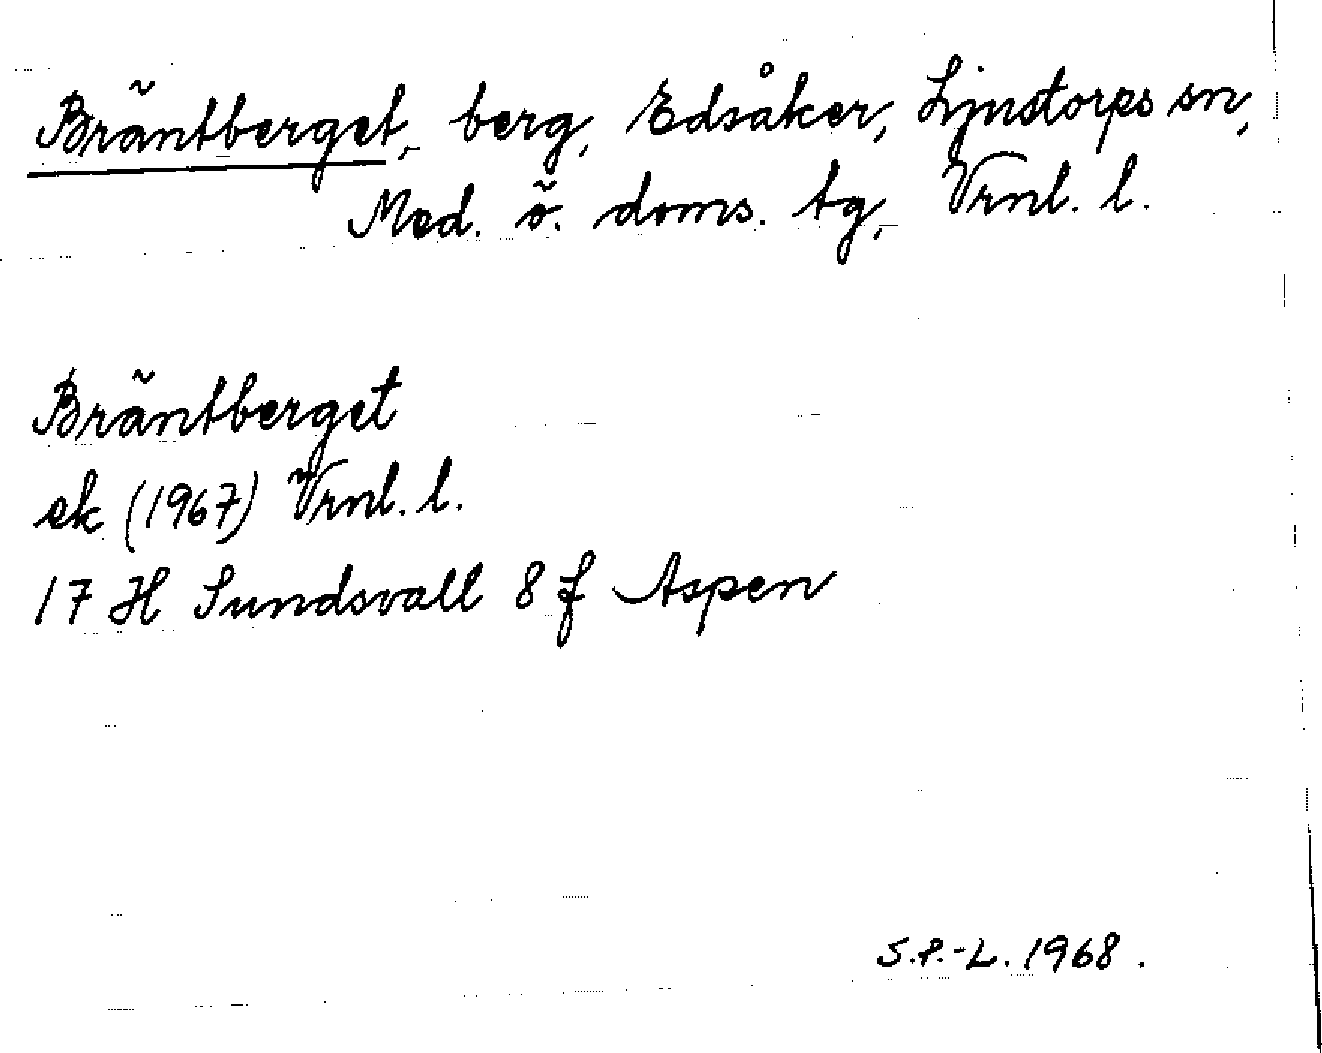 Bräntberget, berg, Edsåker, Ljustorps sn,
Med. ö. doms. tg, Vrnl. l.
Bräntberget
ek (1967) Vrnl. l.
17 H Sundsvall 8 f Aspen
S.P.-L. 1968.